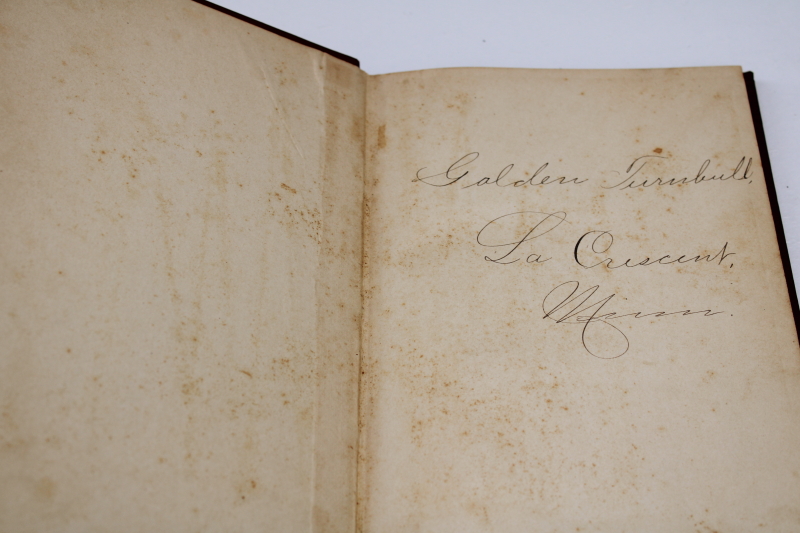 Golden Turnbull,
La Crescent,
Minn.